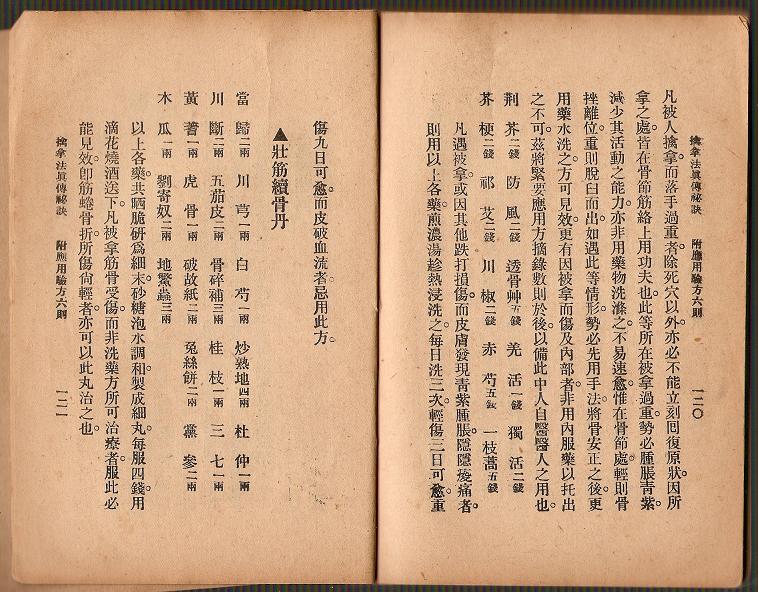 擒拿法眞傳祕訣　附應用驗方六則　一二〇
凡被人擒拿。而落手過重者。除死穴以外。亦必不能立刻囘復原狀。因所
拿之處。皆在骨節筋絡上用功夫也。此等所在被拿過重。勢必腫脹靑紫
減少其活動之能力。亦非用藥物洗滌之。不易速愈。惟在骨節處。輕則骨
挫離位。重則脫臼而出。如遇此等情形。勢必先用手法將骨安正之後。更
用藥水洗之。方可見效。更有因被拿而傷及內部者。非用內服藥以托出
之不可。茲將緊要應用方。摘錄數則於後。以備此中人自醫醫人之用也。
荆芥二錢　防風二錢　透骨艸五錢　羌活一錢　獨活二錢
芥梗二錢　祁艾二錢　川椒二錢　赤芍五錢　一枝蒿五錢
凡遇被拿。或因其他跌打損傷。而皮膚發現靑紫腫脹。隱隱痠痛者。
則用以上各藥。煎濃湯趁熱浸洗之。每日洗三次。輕傷三日可愈。重
傷九日可愈。而皮破血流者。忌用此方。
▲壯筋續骨丹
當歸二兩　川芎一兩　白芍一兩　炒熟地四兩　杜仲一兩
川斷二兩　五茄皮二兩　骨碎補三兩　桂枝一兩　三七一兩
黃蓍一兩　虎骨一兩　破故紙二兩　菟絲餅二兩　黨參二兩
木瓜一兩　劉寄奴二兩　地鱉蟲三兩
以上各藥。共晒脆研爲細末。砂糖泡水調和。製成細丸。每服四錢。用
滴花燒酒送下。凡被拿筋骨受傷。而非洗藥方所可治療者。服此必
能見效。卽筋蜷骨折。所傷尙輕者。亦可以此丸治之也。
擒拿法眞傳祕訣　附應用驗方六則　一二一